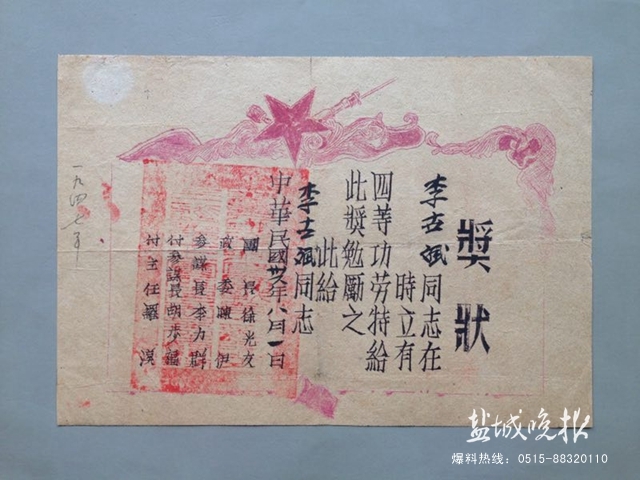 獎狀
李吉斌同志在
時立有
四等功劳特給
此獎勉勵之
此給
李吉斌同志
中華民國卅六年八月一日
團長徐光友
政委陳伊
參謀長李力群
付參謀長胡步福
付主任羅漢
一九四七年
盐城晚报
爆料热线：0515-88320110